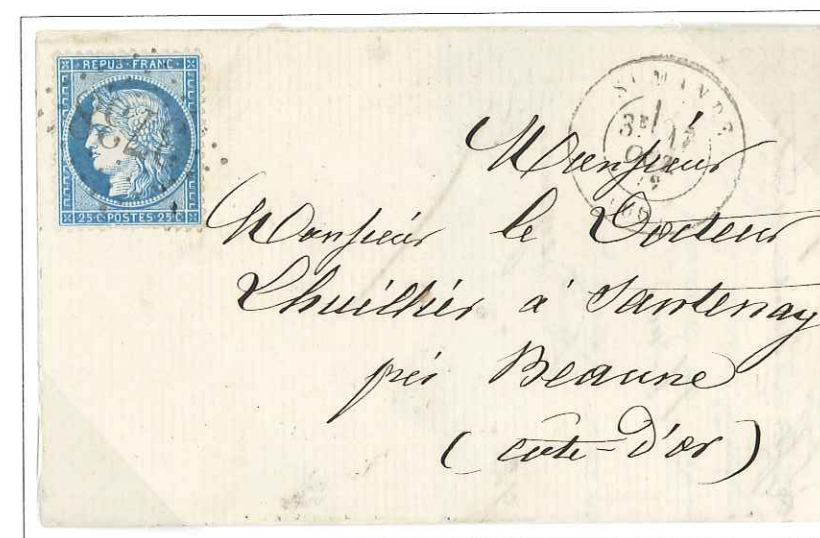 REPUB · FRANC
25 C · POSTES 25 C
ST MANDÉ
3E
17
OCT
Monsieur
Monsieur le Docteur
Lhuillier à Santenay
près Beaune
(côte-d'or)